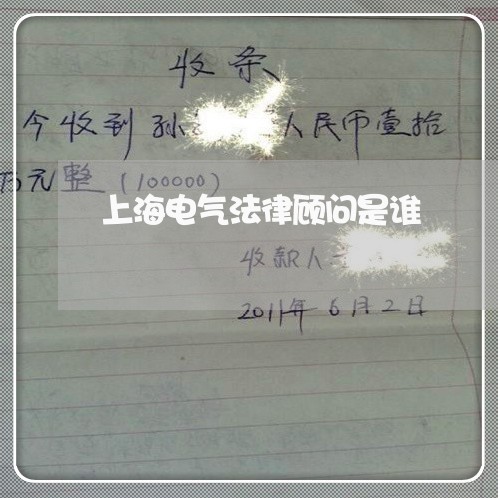 收条
今收到孙 人民币壹拾
万元整(100000)
上海电气法律顾问是谁
收款人
2011年6月2日